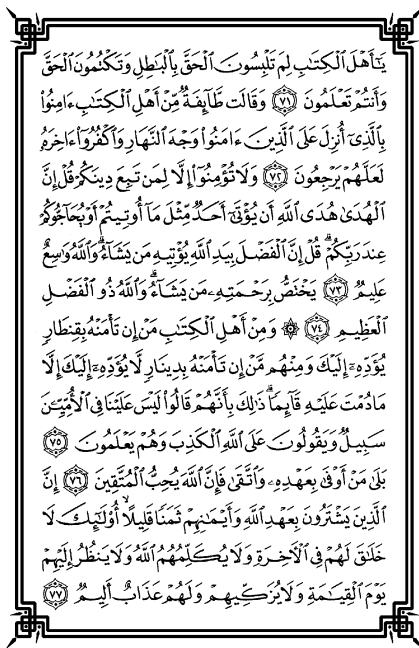 يَٰٓأَهْلَ ٱلْكِتَٰبِ لِمَ تَلْبِسُونَ ٱلْحَقَّ بِٱلْبَٰطِلِ وَتَكْتُمُونَ ٱلْحَقَّ
وَأَنتُمْ تَعْلَمُونَ ٧١ وَقَالَت طَّآئِفَةٌ مِّنْ أَهْلِ ٱلْكِتَٰبِ ءَامِنُوا۟
بِٱلَّذِىٓ أُنزِلَ عَلَى ٱلَّذِينَ ءَامَنُوا۟ وَجْهَ ٱلنَّهَارِ وَٱكْفُرُوٓا۟ ءَاخِرَهُۥ
لَعَلَّهُمْ يَرْجِعُونَ ٧٢ وَلَا تُؤْمِنُوٓا۟ إِلَّا لِمَن تَبِعَ دِينَكُمْ قُلْ إِنَّ
ٱلْهُدَىٰ هُدَى ٱللَّهِ أَن يُؤْتَىٰٓ أَحَدٌ مِّثْلَ مَآ أُوتِيتُمْ أَوْ يُحَآجُّوكُمْ
عِندَ رَبِّكُمْ ۗ قُلْ إِنَّ ٱلْفَضْلَ بِيَدِ ٱللَّهِ يُؤْتِيهِ مَن يَشَآءُ ۗ وَٱللَّهُ وَٰسِعٌ
عَلِيمٌ ٧٣ يَخْتَصُّ بِرَحْمَتِهِۦ مَن يَشَآءُ ۗ وَٱللَّهُ ذُو ٱلْفَضْلِ
ٱلْعَظِيمِ ٧٤ ۞ وَمِنْ أَهْلِ ٱلْكِتَٰبِ مَنْ إِن تَأْمَنْهُ بِقِنطَارٍ
يُؤَدِّهِۦٓ إِلَيْكَ وَمِنْهُم مَّنْ إِن تَأْمَنْهُ بِدِينَارٍ لَّا يُؤَدِّهِۦٓ إِلَيْكَ إِلَّا
مَا دُمْتَ عَلَيْهِ قَآئِمًا ۗ ذَٰلِكَ بِأَنَّهُمْ قَالُوا۟ لَيْسَ عَلَيْنَا فِى ٱلْأُمِّيِّـۧنَ
سَبِيلٌ وَيَقُولُونَ عَلَى ٱللَّهِ ٱلْكَذِبَ وَهُمْ يَعْلَمُونَ ٧٥
بَلَىٰ مَنْ أَوْفَىٰ بِعَهْدِهِۦ وَٱتَّقَىٰ فَإِنَّ ٱللَّهَ يُحِبُّ ٱلْمُتَّقِينَ ٧٦ إِنَّ
ٱلَّذِينَ يَشْتَرُونَ بِعَهْدِ ٱللَّهِ وَأَيْمَٰنِهِمْ ثَمَنًا قَلِيلًا أُو۟لَٰٓئِكَ لَا
خَلَٰقَ لَهُمْ فِى ٱلْءَاخِرَةِ وَلَا يُكَلِّمُهُمُ ٱللَّهُ وَلَا يَنظُرُ إِلَيْهِمْ
يَوْمَ ٱلْقِيَٰمَةِ وَلَا يُزَكِّيهِمْ وَلَهُمْ عَذَابٌ أَلِيمٌ ٧٧